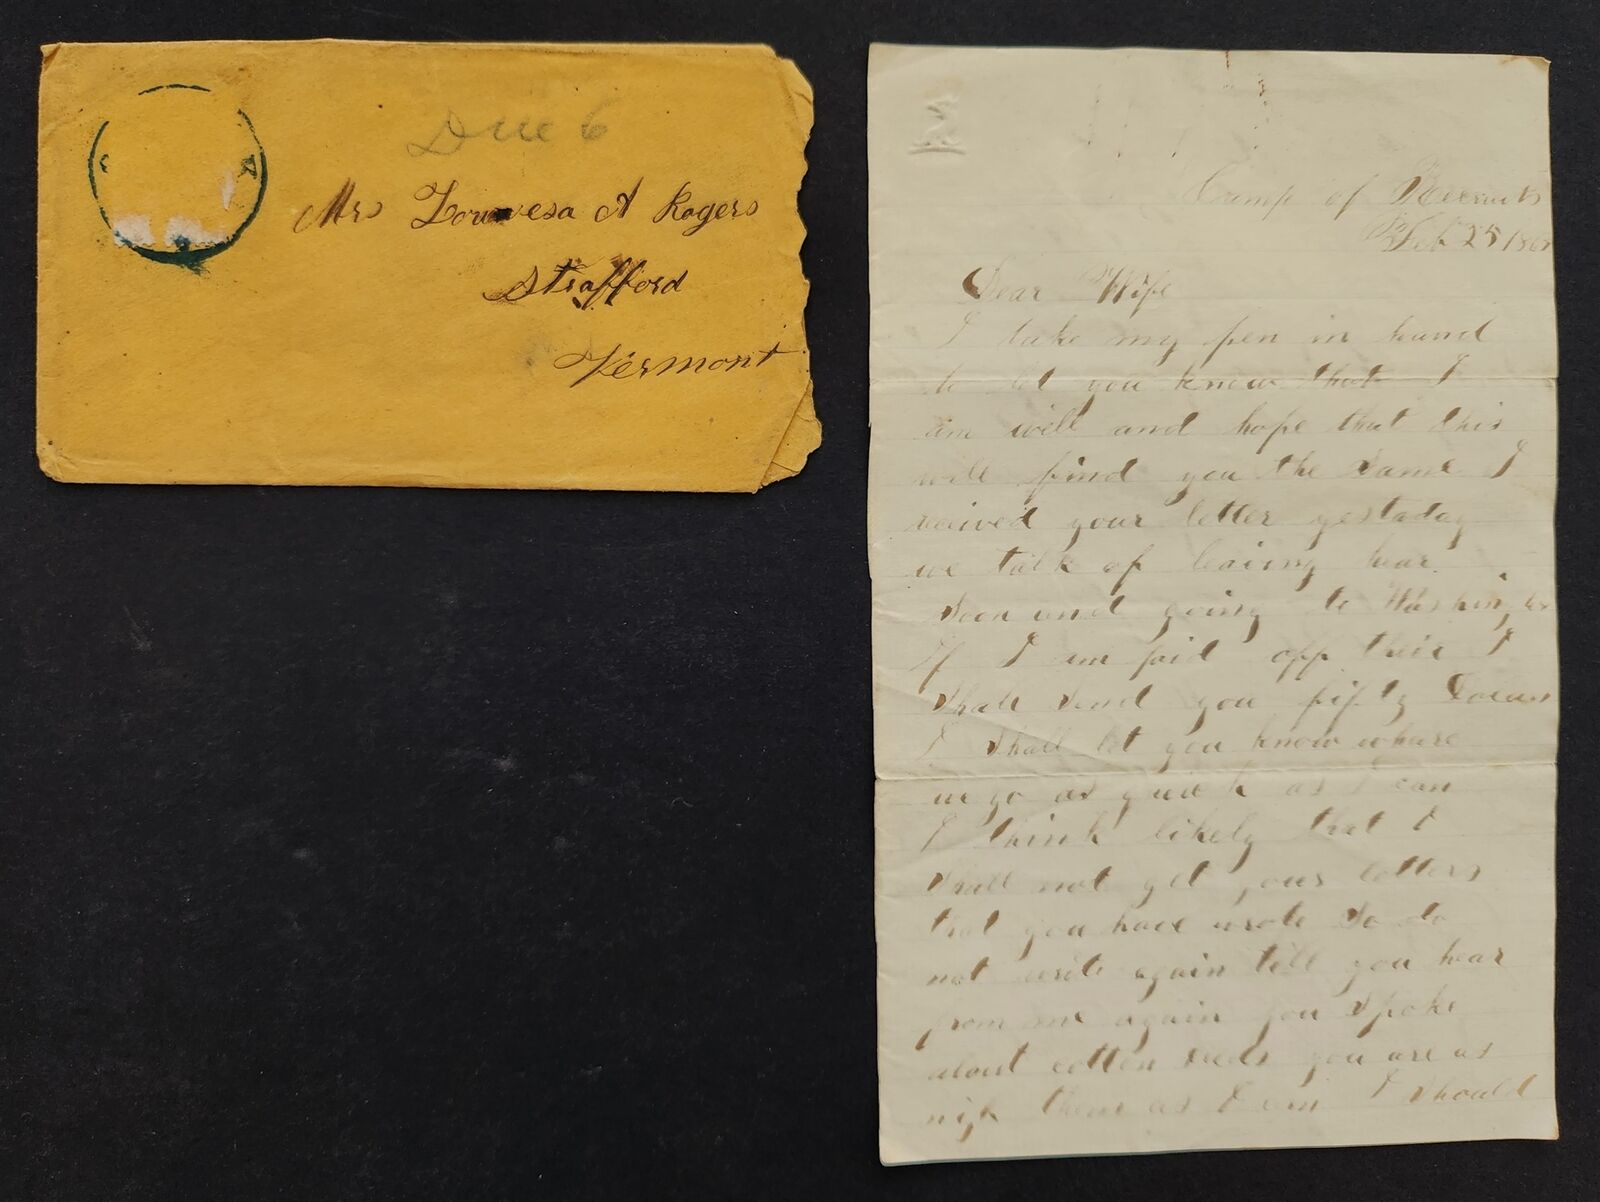 Due 6
Mrs Louvesa A Rogers
Strafford
Vermont
Camp of Recruits
Feb 25 186
Dear Wife
I take my pen in hand
to let you know that I
am well and hope that this
will find you the same I
recived your letter yestaday
we talk of leaving hear
soon and going to
If I am paid opp their I
shall send you fifty
I shall let you know whare
we go as quick as I can
I think likely that I
shall not get your letters
that you have wrote so do
not write again till you hear
from me again you spoke
about cotten seeds you are as
nigh them as I am I should